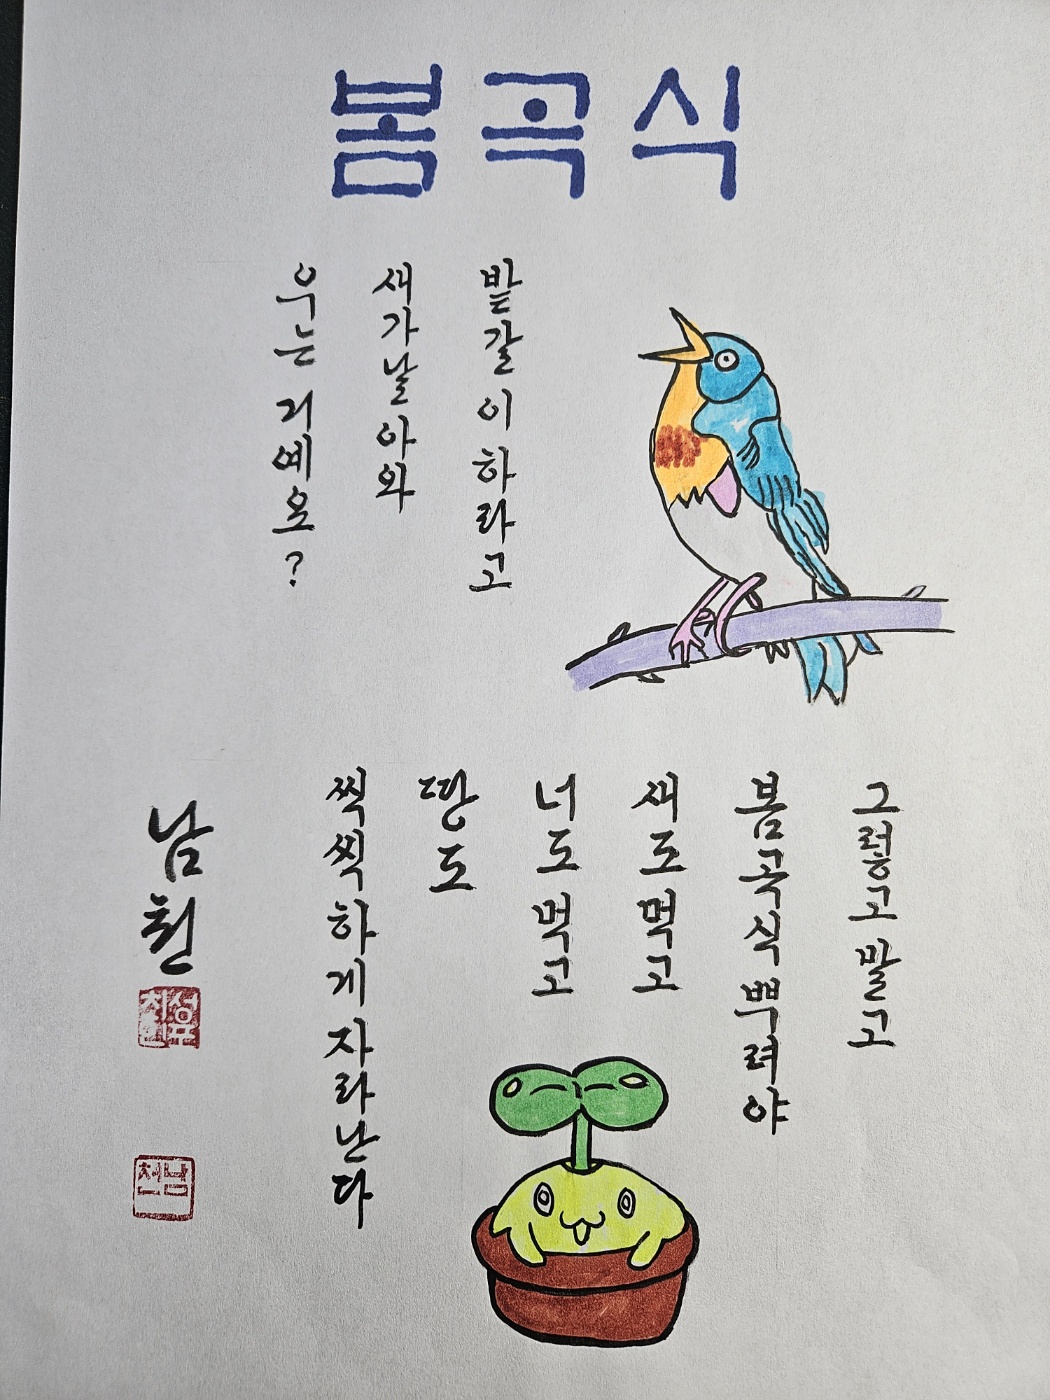 봄곡식
밭갈이하라고
새가날아와
우는 거예요?
그렇고 말고
봄곡식 뿌려야
새도 먹고
너도 먹고
땅도
씩씩하게 자라난다
남천
남천